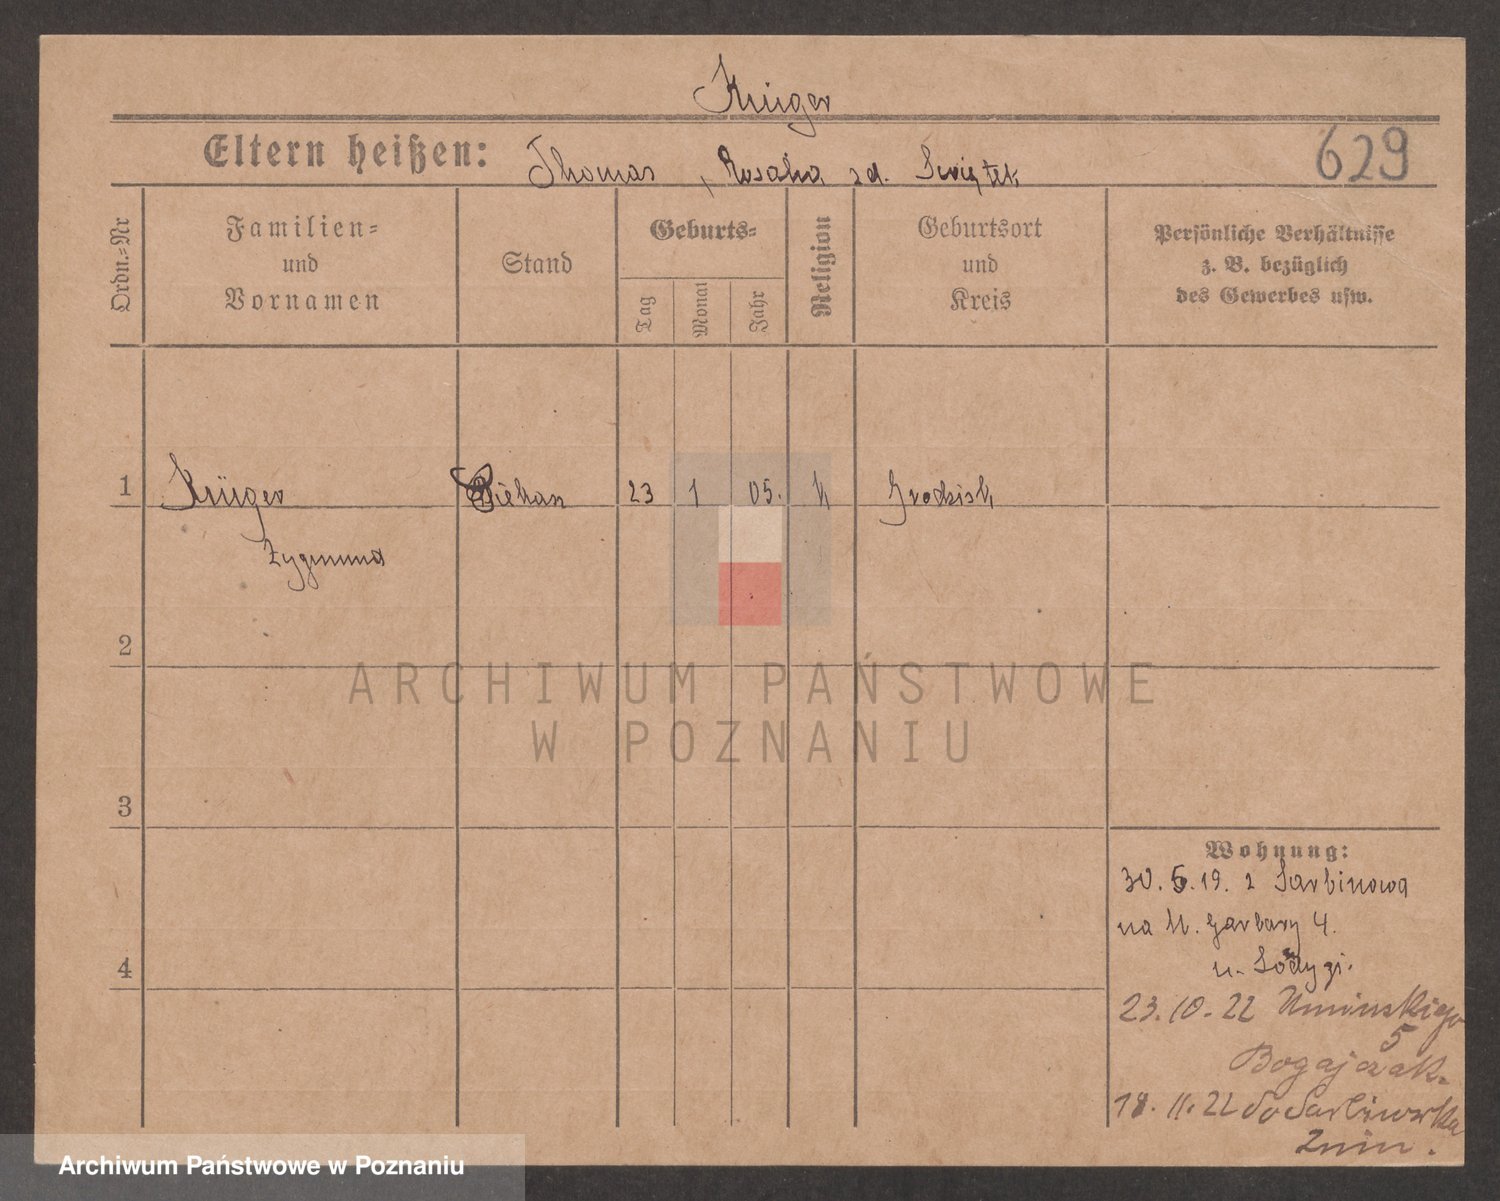 Krüger
Eltern heißen: Thomas, Rosalia zd. Swiątek
629
Ordn.-Nr
Familien=
und
Vornamen
Stand
Geburts=
Tag
Monat
Jahr
Religion
Geburtsort
und
Kreis
Persönliche Verhältnisse
z. B. bezüglich
des Gewerbes usw.
1 Krüger 23 1 05. k Grodzisk
Zygmund
2
ARCHIWUM PAŃSTWOWE
W POZNANIU
3
4
Wohnung:
30. 5. 19. z Sarbinowa
na W. Garbary 4.
u.
23. 10. 22 Umińskiego
5
Bogajczak.
18. 11. 22 do
Żnin.
Archiwum Państwowe w Poznaniu